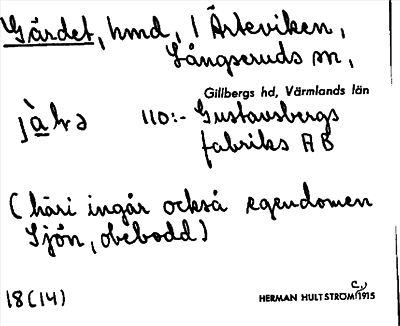 Gärdet, hmd, 1 Ärteviken,
Långseruds sn,
Gillbergs hd, Värmlands län
110:- Gustavsbergs
fabriks AB
(häri ingår också egendomen
Sjön, obebodd)
18(14)
HERMAN HULTSTRÖM 1915